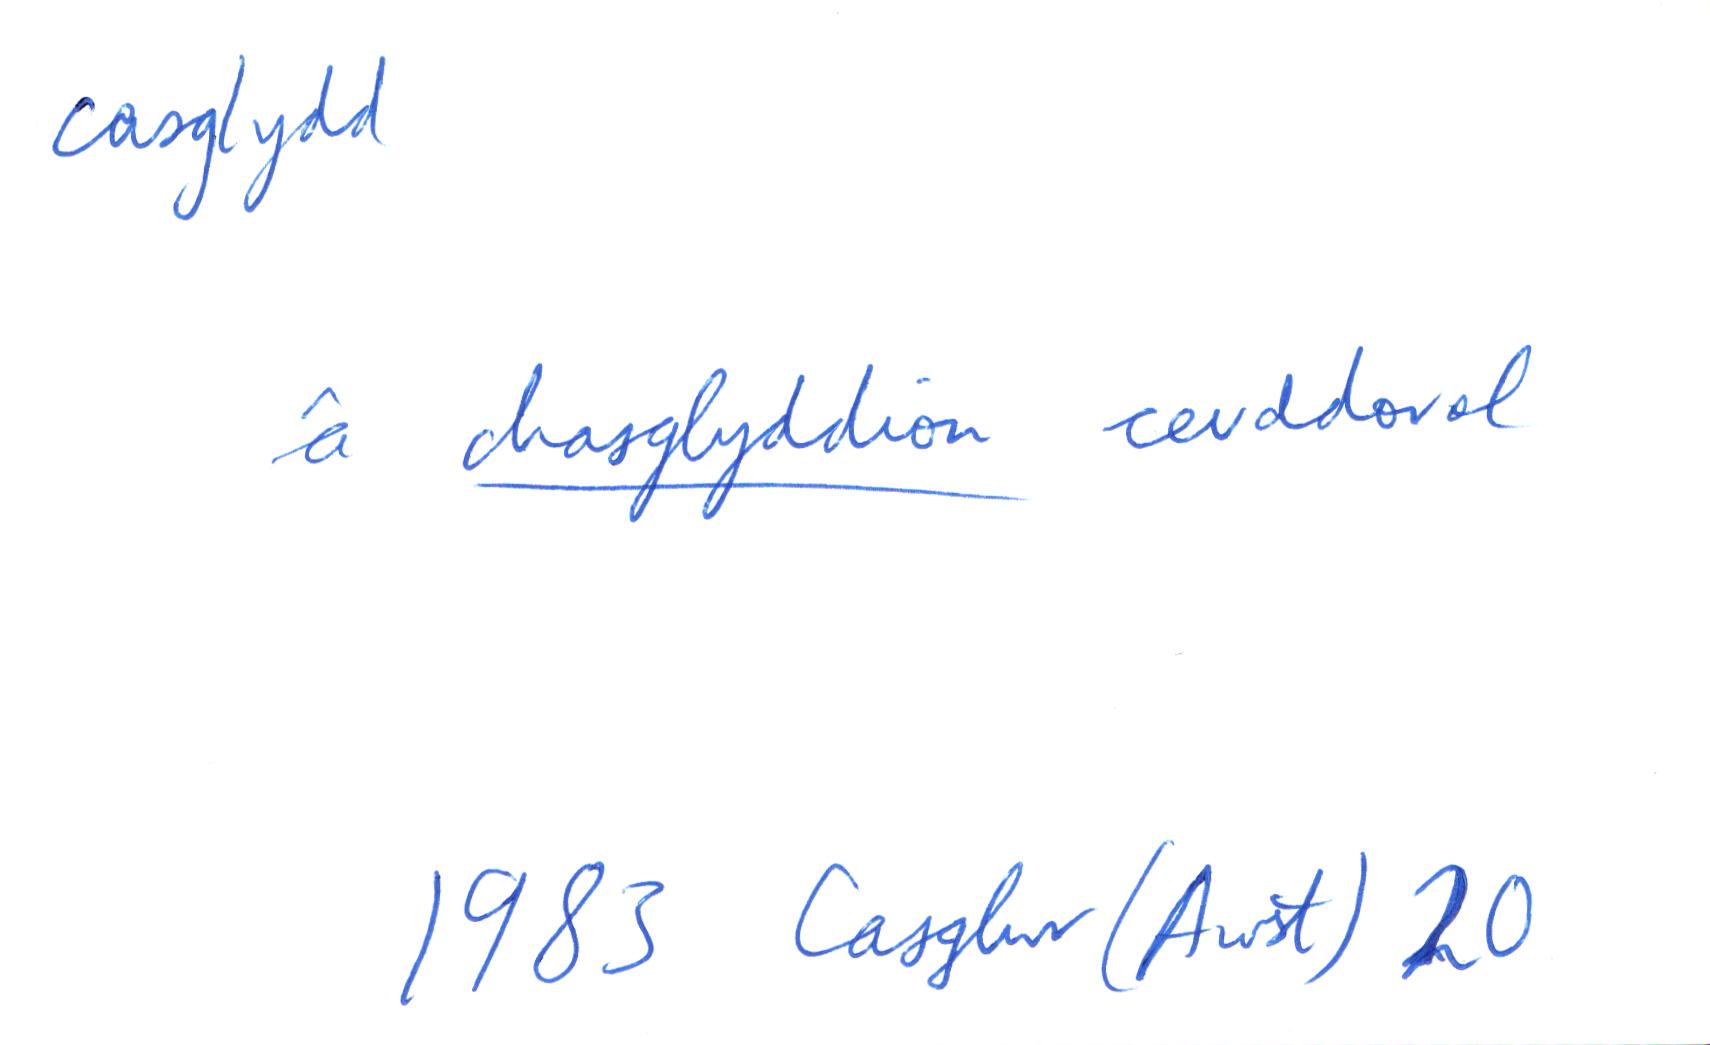 casglydd
â chasglyddion
1983 Casglwr (Awst) 20